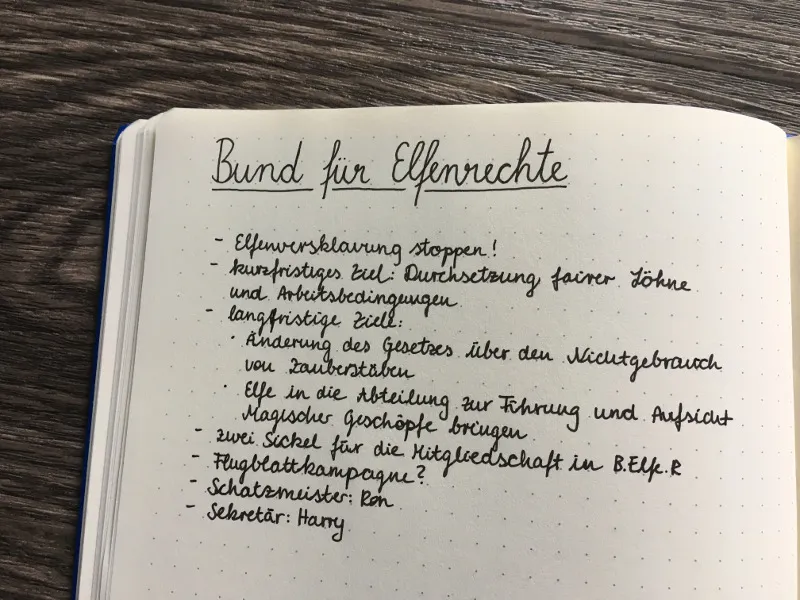 Bund für Elfenrechte
- Elfenversklavung stoppen!
- kurzfristiges Ziel: Durchsetzung fairer Löhne
und Arbeitsbedingungen
- langfristige Ziele:
· Änderung des Gesetzes über den Nichtgebrauch
von Zauberstäben
· Elfe in die Abteilung zur Führung und Aufsicht
Magischer Geschöpfe bringen
- zwei Sickel für die Mitgliedschaft in B.Elfe.R
- Flugblattkampagne?
- Schatzmeister: Ron
- Sekretär: Harry